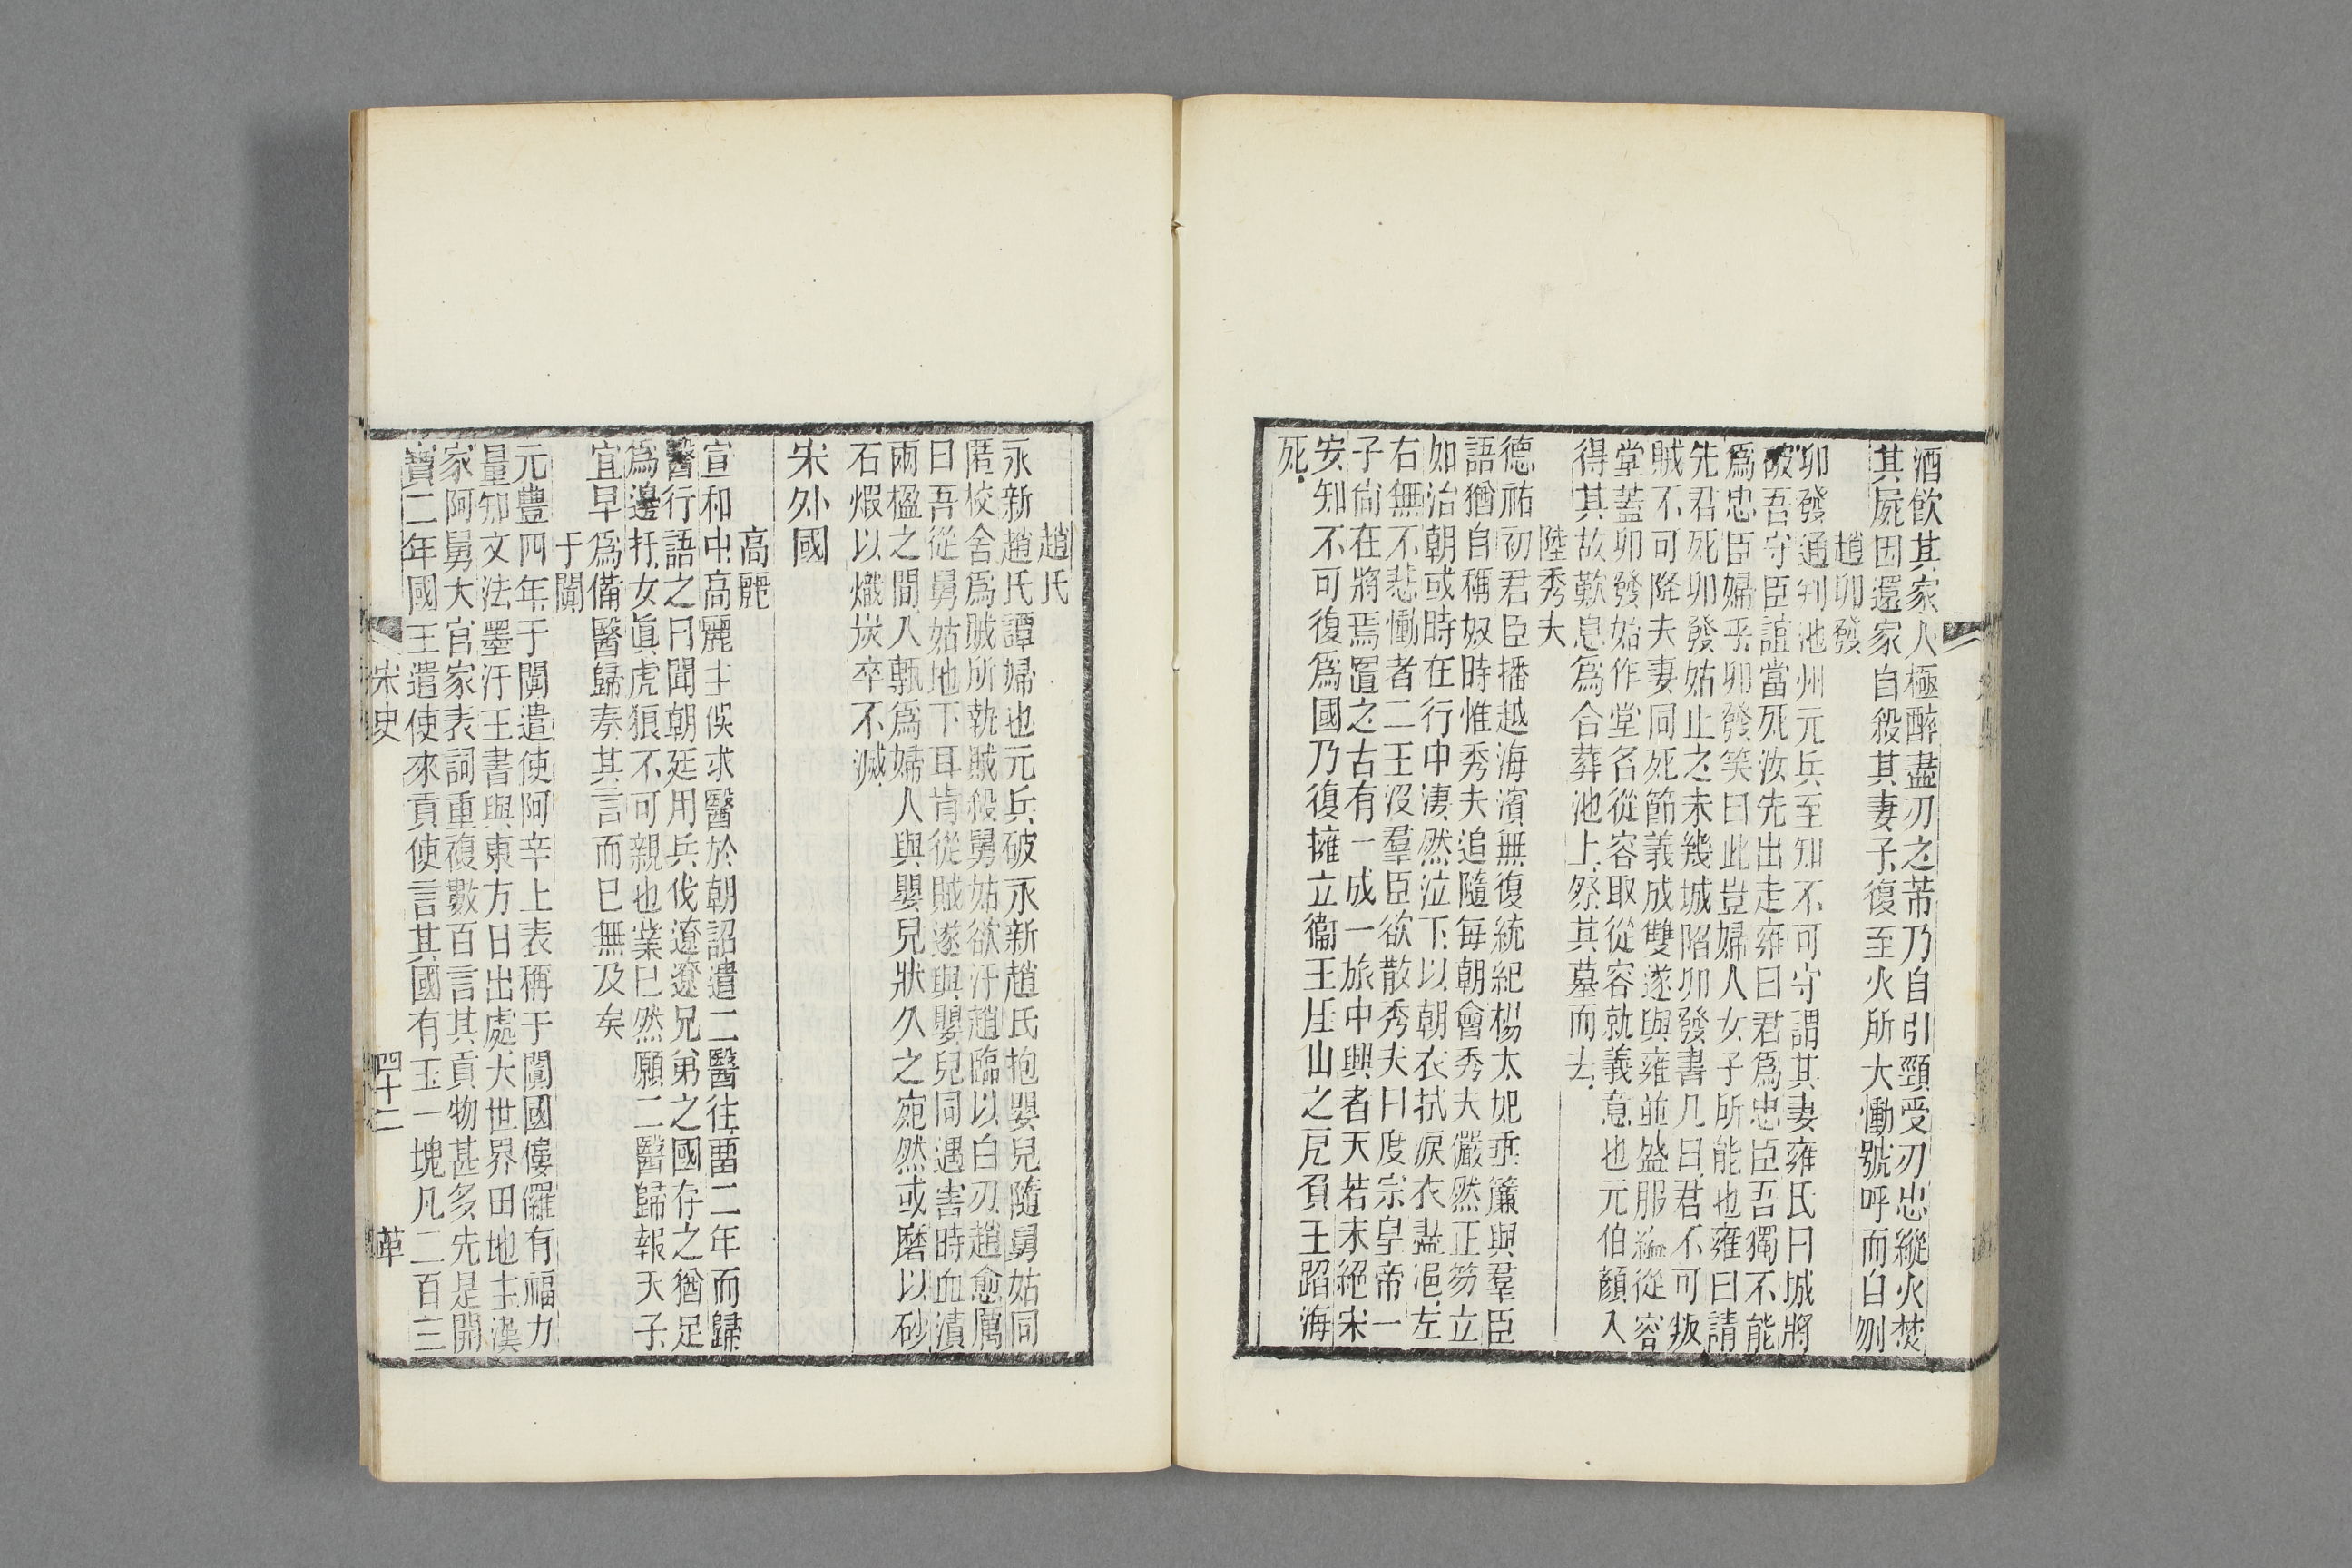 酒飲其家人極醉盡刃之芾乃自引頸受刃忠縱火焚
其屍因還家自殺其妻子復至火所大慟號呼而自刎
趙卯發
卯發通判池州元兵至知不可守謂其妻雍氏曰城將
破吾守臣誼當死汝先出走雍曰君爲忠臣吾獨不能
爲忠臣婦乎卯發笑曰此豈婦人女子所能也雍曰請
先君死卯發姑止之未幾城陷卯發書几曰君不可叛
賊不可降夫妻同死節義成雙遂與雍並盛服縊從容
堂蓋卯發始作堂名從容取從容就義意也元伯顏入
得其故歎息爲合葬池上祭其墓而去
陸秀夫
德祐初君臣播越海濱無復統紀楊太妃垂簾與羣臣
語猶自稱奴時惟秀夫追隨每朝會秀夫儼然正笏立
如治朝或時在行中淒然泣下以朝衣拭淚衣盡浥左
右無不悲慟者二王沒羣臣欲散秀夫曰度宗皇帝一
子尙在將焉置之古有一成一旅中興者天若未絕宋
安知不可復爲國乃復擁立衞王厓山之㐫負王蹈海
死
趙氏
永新趙氏譚婦也元兵破永新趙氏抱嬰兒隨舅姑同
匿校舍爲賊所執賊殺舅姑欲汙趙臨以白刃趙愈厲
曰吾從舅姑地下耳肯從賊遂與嬰兒同遇害時血漬
兩楹之間入甎爲婦人與嬰兒狀久之宛然或磨以砂
石煆以熾炭卒不滅
宋外國
高麗
宣和中高麗王俁求醫於朝詔遣二醫往畱二年而歸
醫行語之曰聞朝廷用兵伐遼遼兄弟之國存之猶足
爲邊扞女眞虎狼不可親也業已然願二醫歸報天子
宜早爲備醫歸奏其言而已無及矣
于闐
元豐四年于闐遣使阿辛上表稱于闐國僂儸有福力
量知文法墨汗王書與東方日出處大世界田地主漢
家阿舅大官家表詞重複數百言其貢物甚多先是開
寶二年國王遣使來貢使言其國有玉一塊凡二百三
宋史
四十二
革